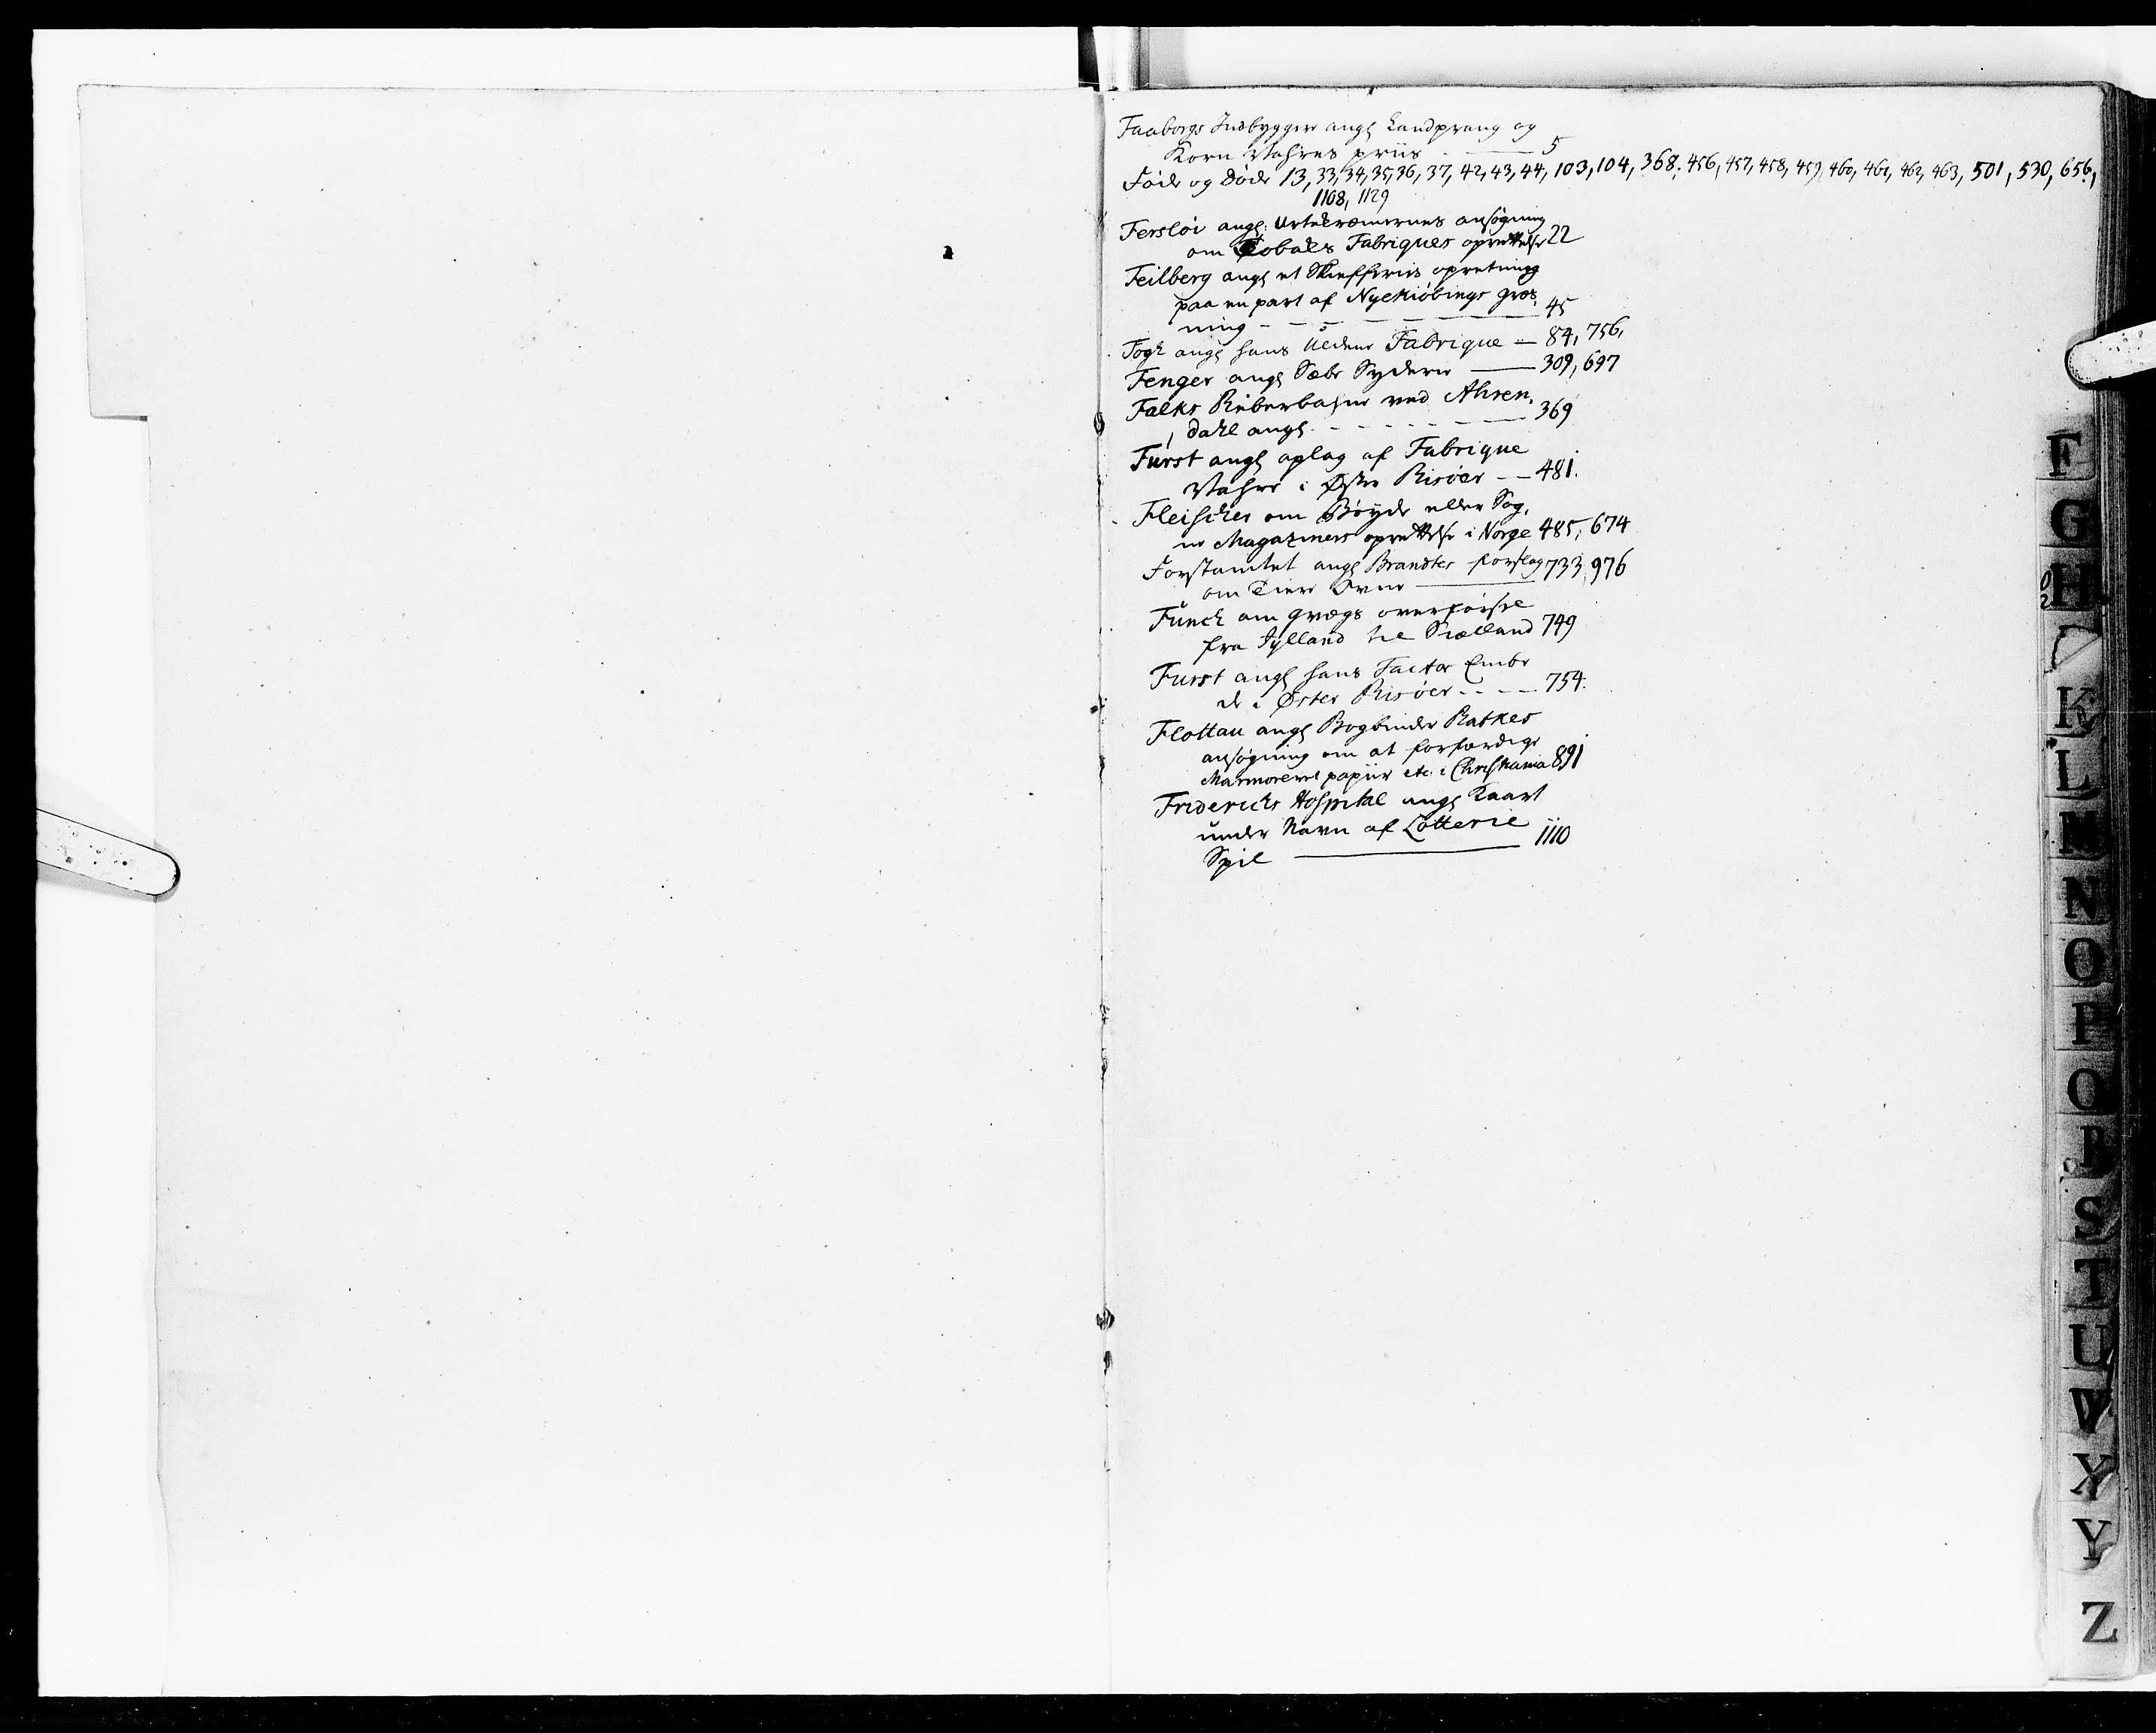 Faaborgs Indbyggere angl Landprang og
Korn Vahres priis - 5
Föde og Döde 13, 33, 34, 35, 36, 37, 42, 43, 44, 103, 104, 368, 456, 457, 458, 459, 460, 461, 462, 463, 501, 530, 656,
1108, 1129
Fersløi angl: Urtekræmmernes ansøgning
om Tobaks Fabriques oprettelse 22
Feilberg angl et Skiefferies opretning
paa en part af Nyekiöbings græs,
ning - - - - - 45
Fogh angl hans Uldene Fabrique = 84, 756,
Fenger angl Sæbe Syderie — 309, 697
Falks Reberbahne ved Ahren,
dahl angl. - - - - - 369
Fürst angl oplag af Fabrique
Vahre i Øster Risöer - - 481.
Fleischer om Böyde eller Sog,
ne Magaziners oprettelse i Norge 485, 674
Forstamtet angl Brandtes forslag 733, 976
om Tiere Ovne —
Fünck om qvægs overførsel
fra Jylland til Siælland 749
Furst angl hans Factor Embe
de i Øster Risöer - - - - 754.
Flottau angl Bogbinder Ratkes
ansøgning om at forfærdige
Marmoreret papiir etc. i Christiania 891
Friderichs Hospital angl Kaart
under Navn af Lotterie
Spil — 1110
F
G
H
K
L
M
N
O
P
Q
R
S
T
U
W
X
Y
Z